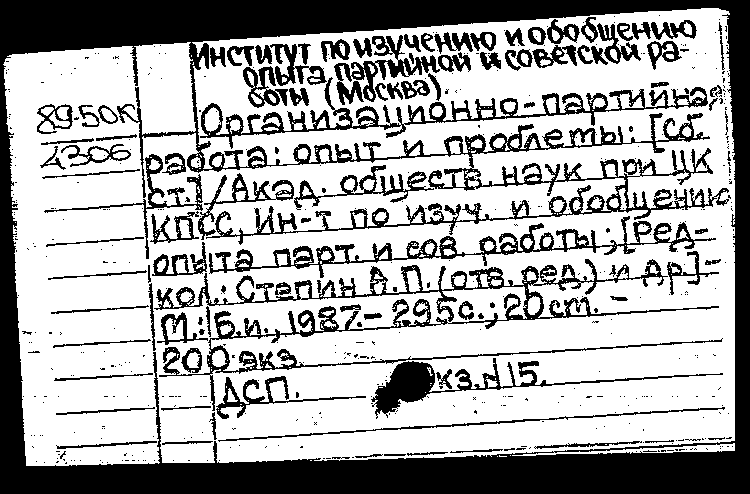 Институт по изучению и обобщению
опыта партийной и советской ра-
боты (Москва).
89-50К
4306
Организационно-партийная
работа: опыт и проблемы: [Сб.
ст.] / Акад. обществ. наук при ЦК
КПСС, Ин-т по изуч. и обобщению
опыта парт. и сов. работы; [Ред-
кол.: Степин А.П. (отв. ред.) и др.] -
М.: Б.и., 1987. - 295с.; 20 ст. -
200 экз.
ДСП. кз. N 15.